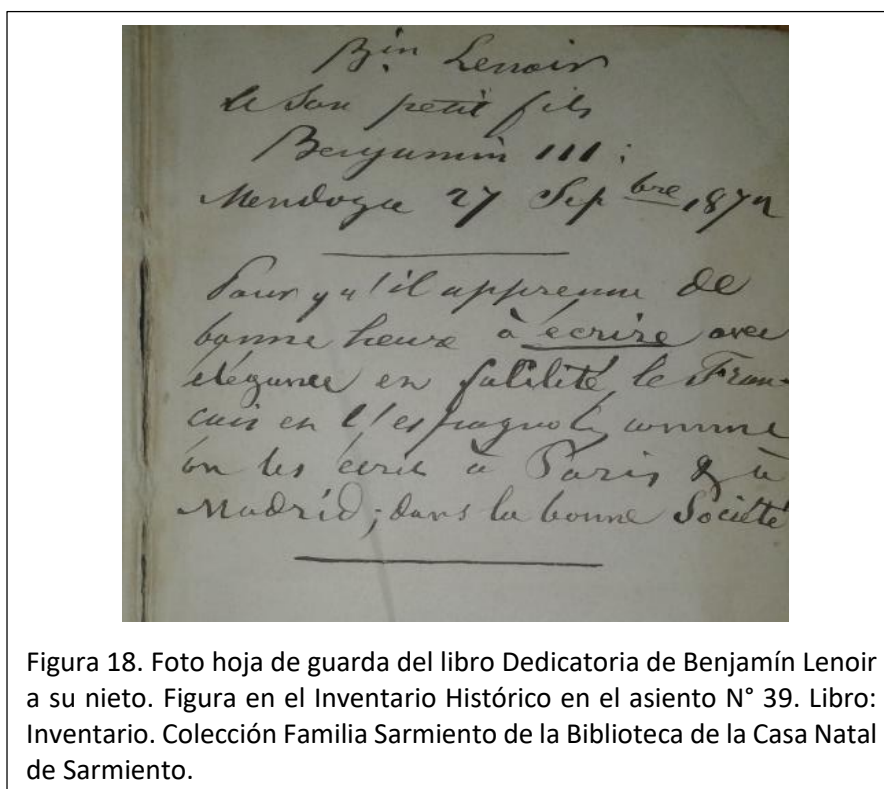 Bin. Lenoir
a Son petit fils
Benjamin III :
Mendoza 27 Sepbre, 1872
Pour qu'il apprenne de
bonne heure à ecrire avec
élégance en facilité le Fran-
cais en l'espagnol, comme
on les ecrit à Paris & à
Madrid; dans la bonne Société
Figura 18. Foto hoja de guarda del libro Dedicatoria de Benjamín Lenoir
a su nieto. Figura en el Inventario Histórico en el asiento N° 39. Libro:
Inventario. Colección Familia Sarmiento de la Biblioteca de la Casa Natal
de Sarmiento.